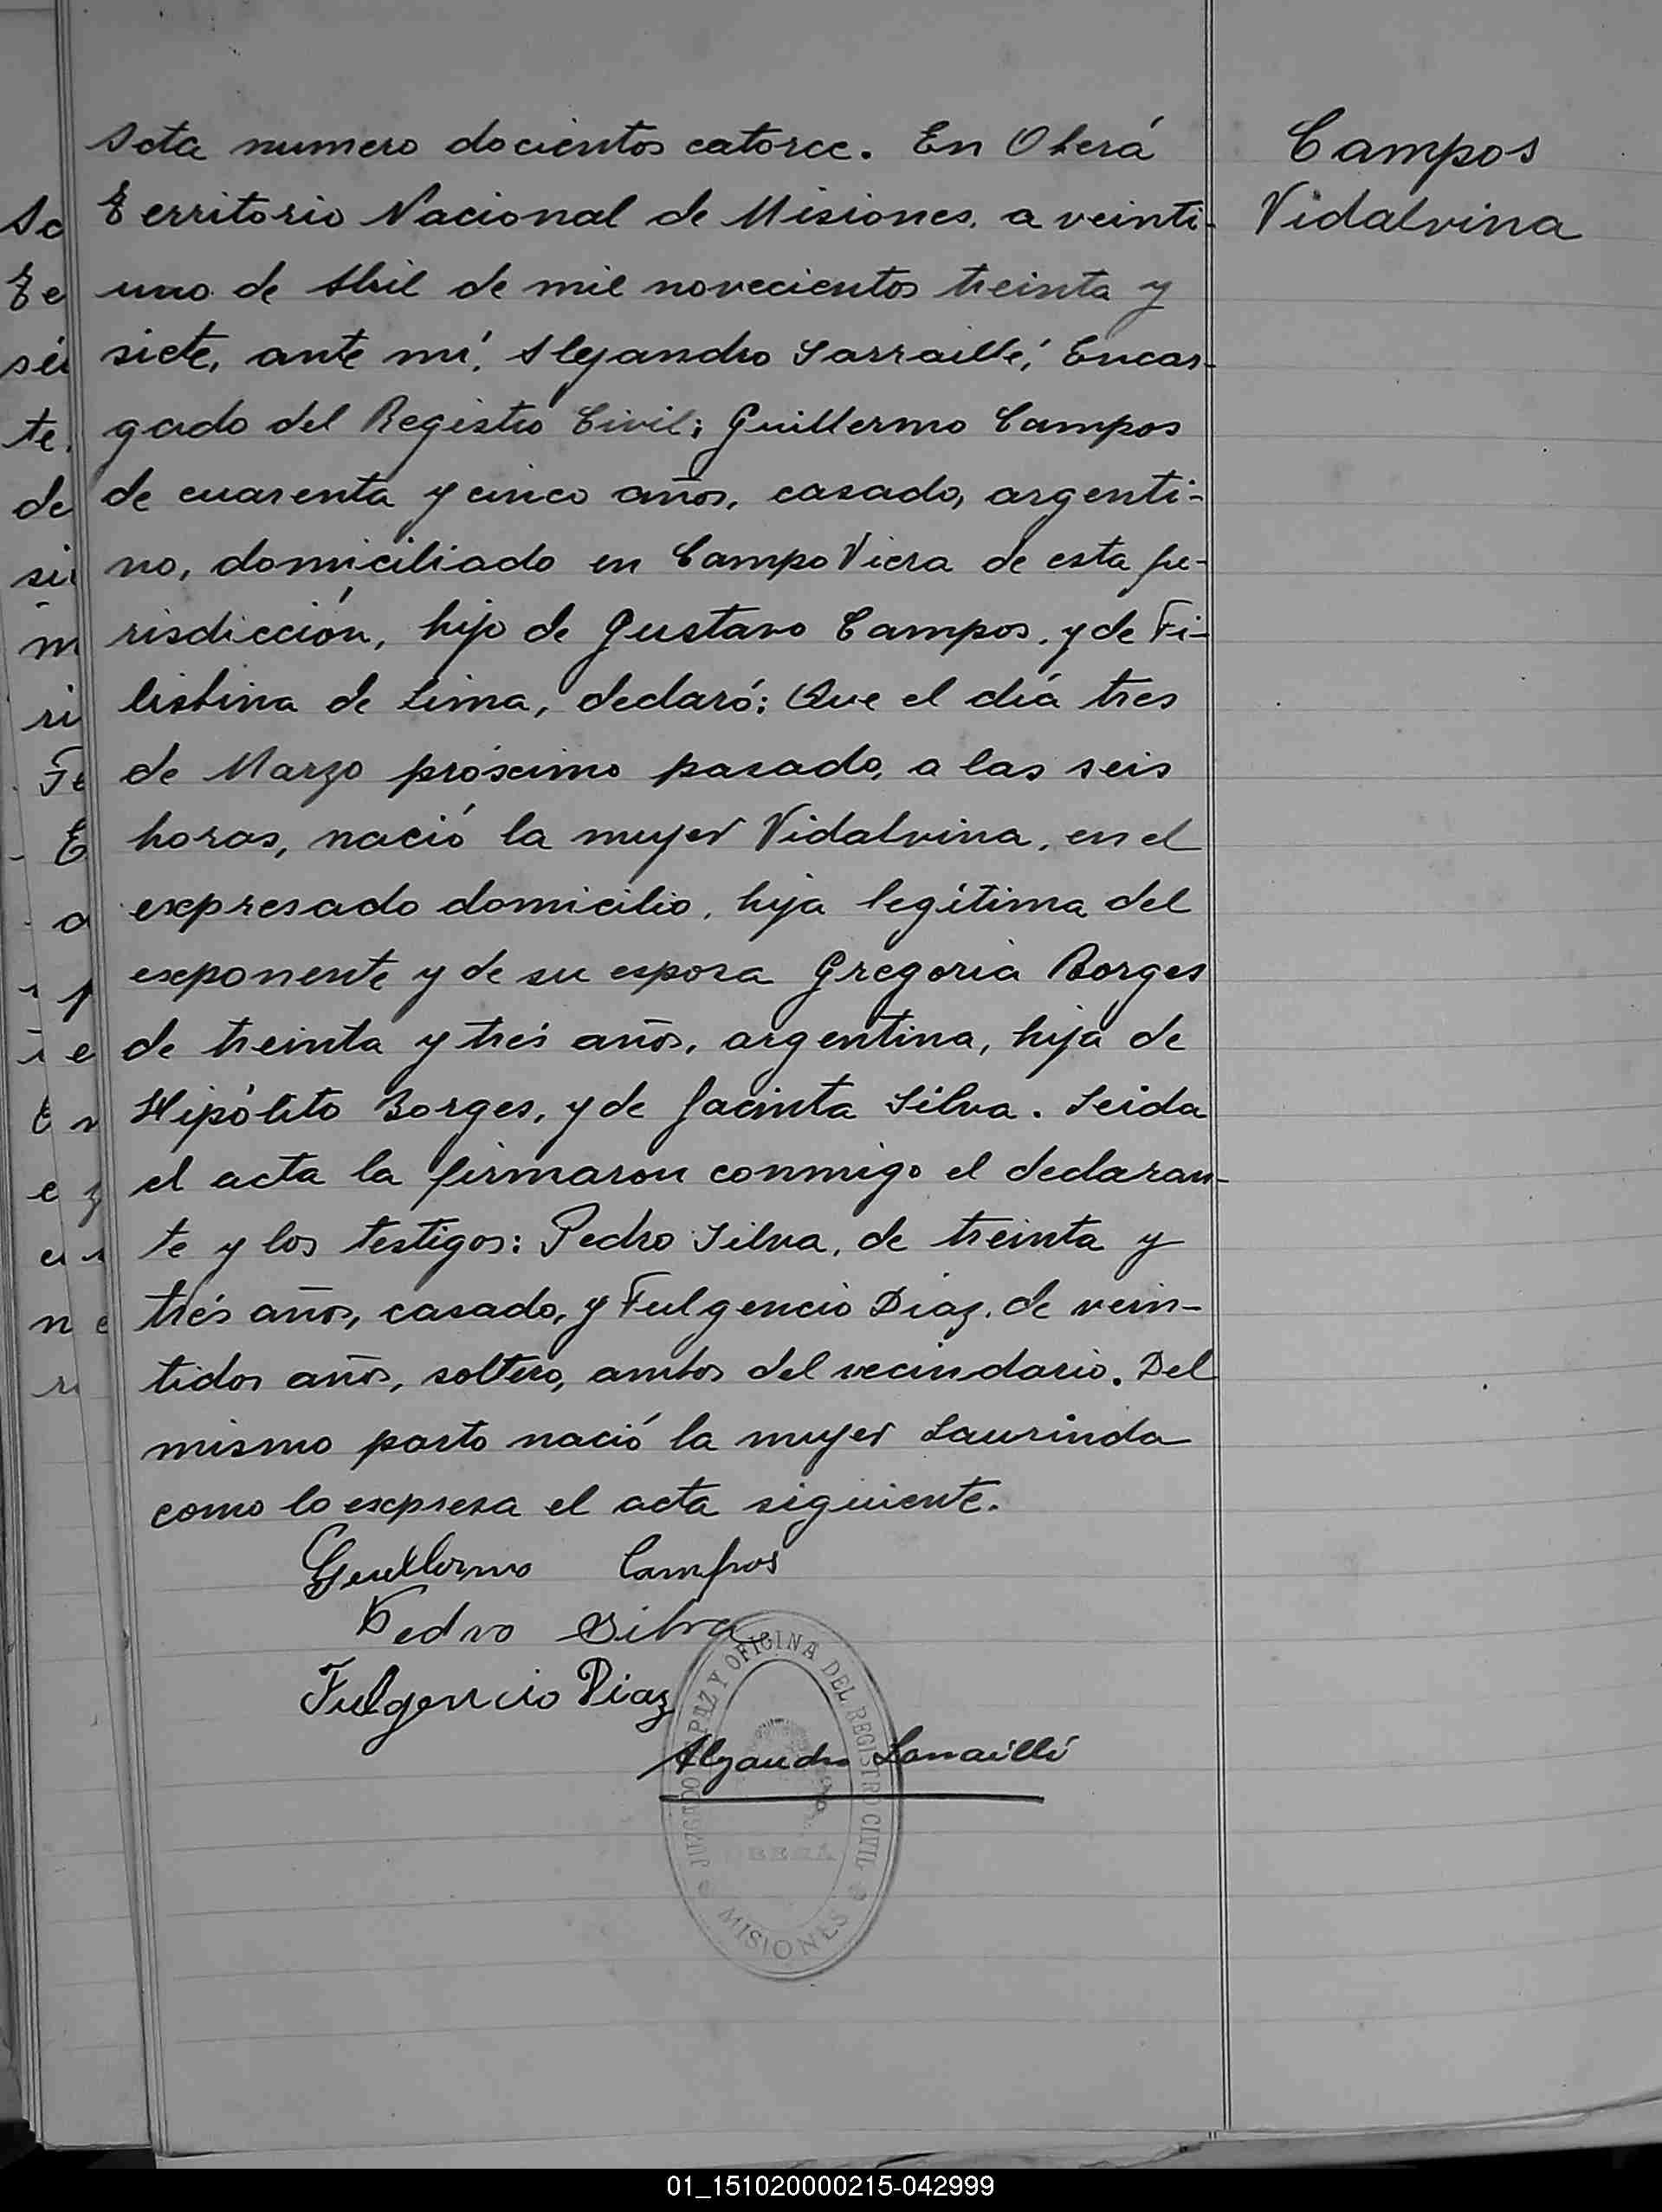 Acta numero docientos catorce. En Oberá
Territorio Nacional de Misiones, a veinti-
uno de Abril de mil novecientos treinta y
siete, ante mí, Alejandro Sarraillé, Encar-
gado del Registro Civil; Guillermo Campos
de cuarenta y cinco años, casado, argenti-
no, domiciliado en Campo Viera de esta ju-
risdicción, hijo de Gustavo Campos, y de Fi-
listina de Lima, declaró: Que el día tres
de Marzo próximo pasado, a las seis
horas, nació la mujer Vidalvina, en el
expresado domicilio, hija legítima del
exponente y de su esposa Gregoria Borges
de treinta y trés años, argentina, hija de
Hipólito Borges, y de Jacinta Silva. Leida
el acta la firmaron conmigo el declaran-
te y los testigos: Pedro Silva, de treinta y
trés años, casado, y Fulgencio Diaz, de vein-
tidos años, soltero, ambos del vecindario. Del
mismo parto nació la mujer Laurinda
como lo expresa el acta siguiente.
Guillermo Campos
Pedro Silva
Fulgencio Diaz
Alejandro Sarraillé
JUZGADO PAZ Y OFICINA DEL REGISTRO CIVIL
MISIONES
Campos
Vidalvina
01_151020000215-042999